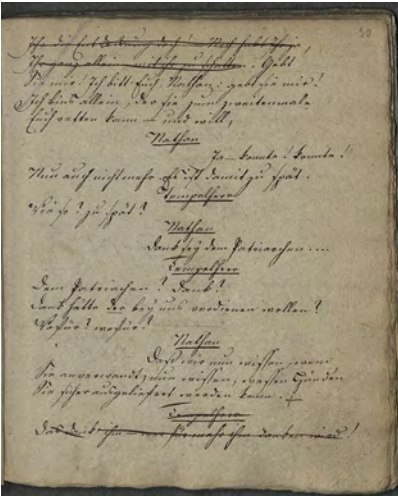 doch! – Noch habt Ihr ja,
Ihr ganz allein, mit ihr zu schalten. Gebt
Sie mir! Ich bitt Euch, Nathan; gebt sie mir!
Ich bins allein, der sie zum zweitenmale
Euch retten kann – und will,
Nathan
Ja – konnte! konnte!
Nun auch nicht mehr. Es ist damit zu spät.
Tempelherr
Wie so? zu spät?
Nathan
Dank sey dem Patriarchen ...
Tempelherr
Dem Patriarchen? Dank?
Dank hätte der bey uns verdienen wollen?
Wofür? wofür?
Nathan
Daß wir nun wissen, wem
Sie anverwandt; nun wissen, wessen Händen
Sie sicher ausgeliefert werden kann.
Tempelherr
Das dank ihm – wer für mehr ihm danken wird!